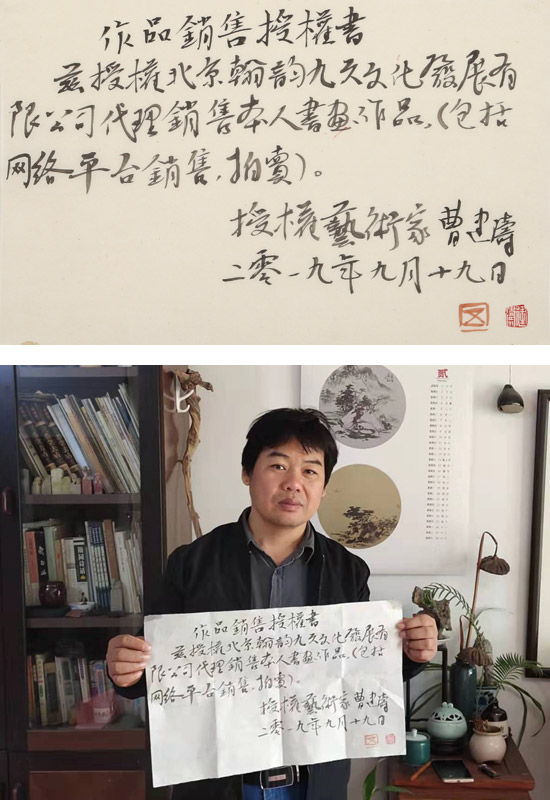 作品銷售授權書
兹授權北京翰韵九天文化發展有
限公司代理銷售本人書画作品，（包括
网络平台銷售，拍賣）。
授權藝術家曹建濤
二零一九年九月十九日
貳
作品銷售授權書
兹授權北京翰韵九天文化發展有
限公司代理銷售本人書画作品，（包括
网络平台銷售，拍賣）。
授權藝術家曹建濤
二零一九年九月十九日